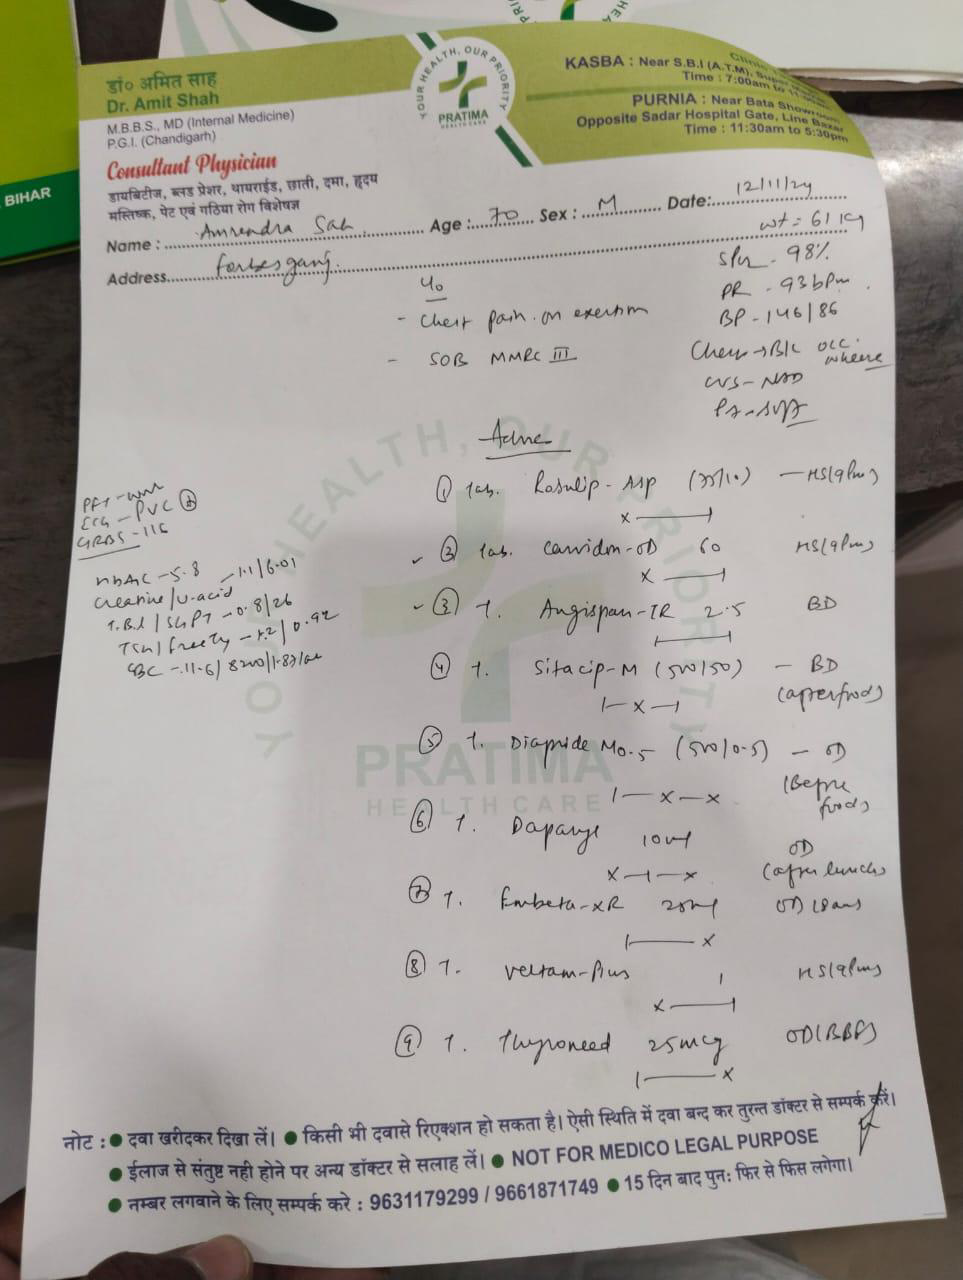 BIHAR
डॉ० अमित साह
Dr. Amit Shah
M.B.B.S., MD (Internal Medicine)
P.G.I. (Chandigarh)
Consultant Physician
डायबिटीज, ब्लड प्रेशर, थायराईड, छाती, दमा, हृदय
मस्तिष्क, पेट एवं गठिया रोग विशेषज्ञ
YOUR HEALTH, OUR PRIORITY
PRATIMA
HEALTH CARE
KASBA : Near S.B.I (A.T.M),
Time : 7:00am to
PURNIA : Near Bata Showroom
Opposite Sadar Hospital Gate, Line Bazar
Time : 11:30am to 5:30pm
Name : Amrendra Sah Age : 70 Sex : M Date: 12/11/24
Address Forbesganj.
wt = 61 kg
98%
PR - 93 bpm
BP - 146/86
c/o
- Chest pain on exertion
- SOB MMRC III
Chest → B/L occ. wheeze
CVS - NAD
P/A - Soft
Adv
PFT -
ECG - PVC
GRBS - 116
HbA1C - 5.8
Creatine / U-acid - 1.1/6.01
T.Bil / SGPT - 0.8/26
TSH / Free T4 - 1.2 / 0.92
CBC - 11.6/8200/1.87/
① Tab. Rosulip-Asp (75/10) — HS (9pm)
x —
② Tab. Carvidon-OD 60 HS (9pm)
x —
③ T. Angispan-TR 2.5 BD
④ T. Sitacip-M (500/50) - BD
(after food)
1 - x - 1
⑤ T. Diapride M0.5 (500/0.5) - OD
(Before food)
1 - x - x
⑥ T. Daparyl 10mg OD
(after lunch)
x - 1 - x
⑦ T. Embeta-XR 25mg OD (8am)
1 — x
⑧ T. Veltam-Plus 1 HS (9pm)
x — 1
⑨ T. Thyroneed 25mcg OD (BBF)
1 — x
YOUR HEALTH, OUR PRIORITY
PRATIMA
HEALTH CARE
नोट : ● दवा खरीदकर दिखा लें। ● किसी भी दवासे रिएक्शन हो सकता है। ऐसी स्थिति में दवा बन्द कर तुरन्त डॉक्टर से सम्पर्क करें।
● ईलाज से संतुष्ट नही होने पर अन्य डॉक्टर से सलाह लें। ● NOT FOR MEDICO LEGAL PURPOSE
● नम्बर लगवाने के लिए सम्पर्क करे : 9631179299 / 9661871749 ● 15 दिन बाद पुनः फिर से फिस लगेगा।